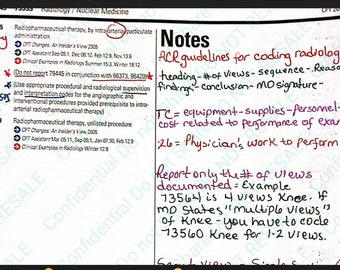 79999 Radiology / Nuclear Medicine
CPT 20
Radiopharmaceutical therapy, by intra-arterial particulate
administration
CPT Changes: An Insider's View 2005
CPT Assistant Sep 05:1, Dec 06:12, Feb 12:9, Nov 13:9
Clinical Examples in Radiology Summer 15:3, Winter 18:12
(Do not report 79445 in conjunction with 96373, 96420)
(Use appropriate procedural and radiological supervision
and interpretation codes for the angiographic and
interventional procedures provided prerequisite to intra-
arterial radiopharmaceutical therapy)
Radiopharmaceutical therapy, unlisted procedure
CPT Changes: An Insider's View 2005
CPT Assistant Mar 05:11, Sep 05:1, Jan 07:30, Feb 12:9
Clinical Examples in Radiology Winter 18:9
Notes
ACR guidelines for coding radiolog
heading - # of views - sequence - Reaso
findings - conclusion - MD signature -
TC = equipment - supplies - Personnel -
cost related to performance of exa
26 = Physician's work to perform
Report only the # of views
documented = Example
73564 is 4 views Knee. If
MD States "multiple views"
of Knee - you have to code
73560 Knee for 1-2 views.